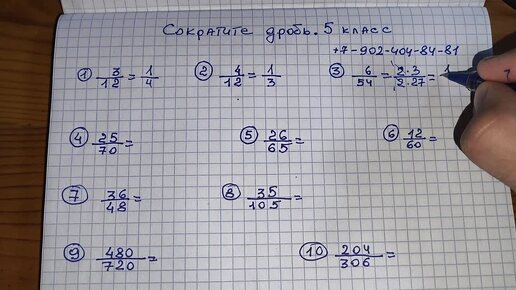 Сократите дробь. 5 класс
+7-902-404-84-81
① 3/12 = 1/4 ② 4/12 = 1/3 ③ 6/54 = 2·3/2·27 = 1
④ 25/70 = ⑤ 26/65 = ⑥ 12/60 =
⑦ 36/48 = ⑧ 35/105 =
⑨ 480/720 = ⑩ 204/306 =